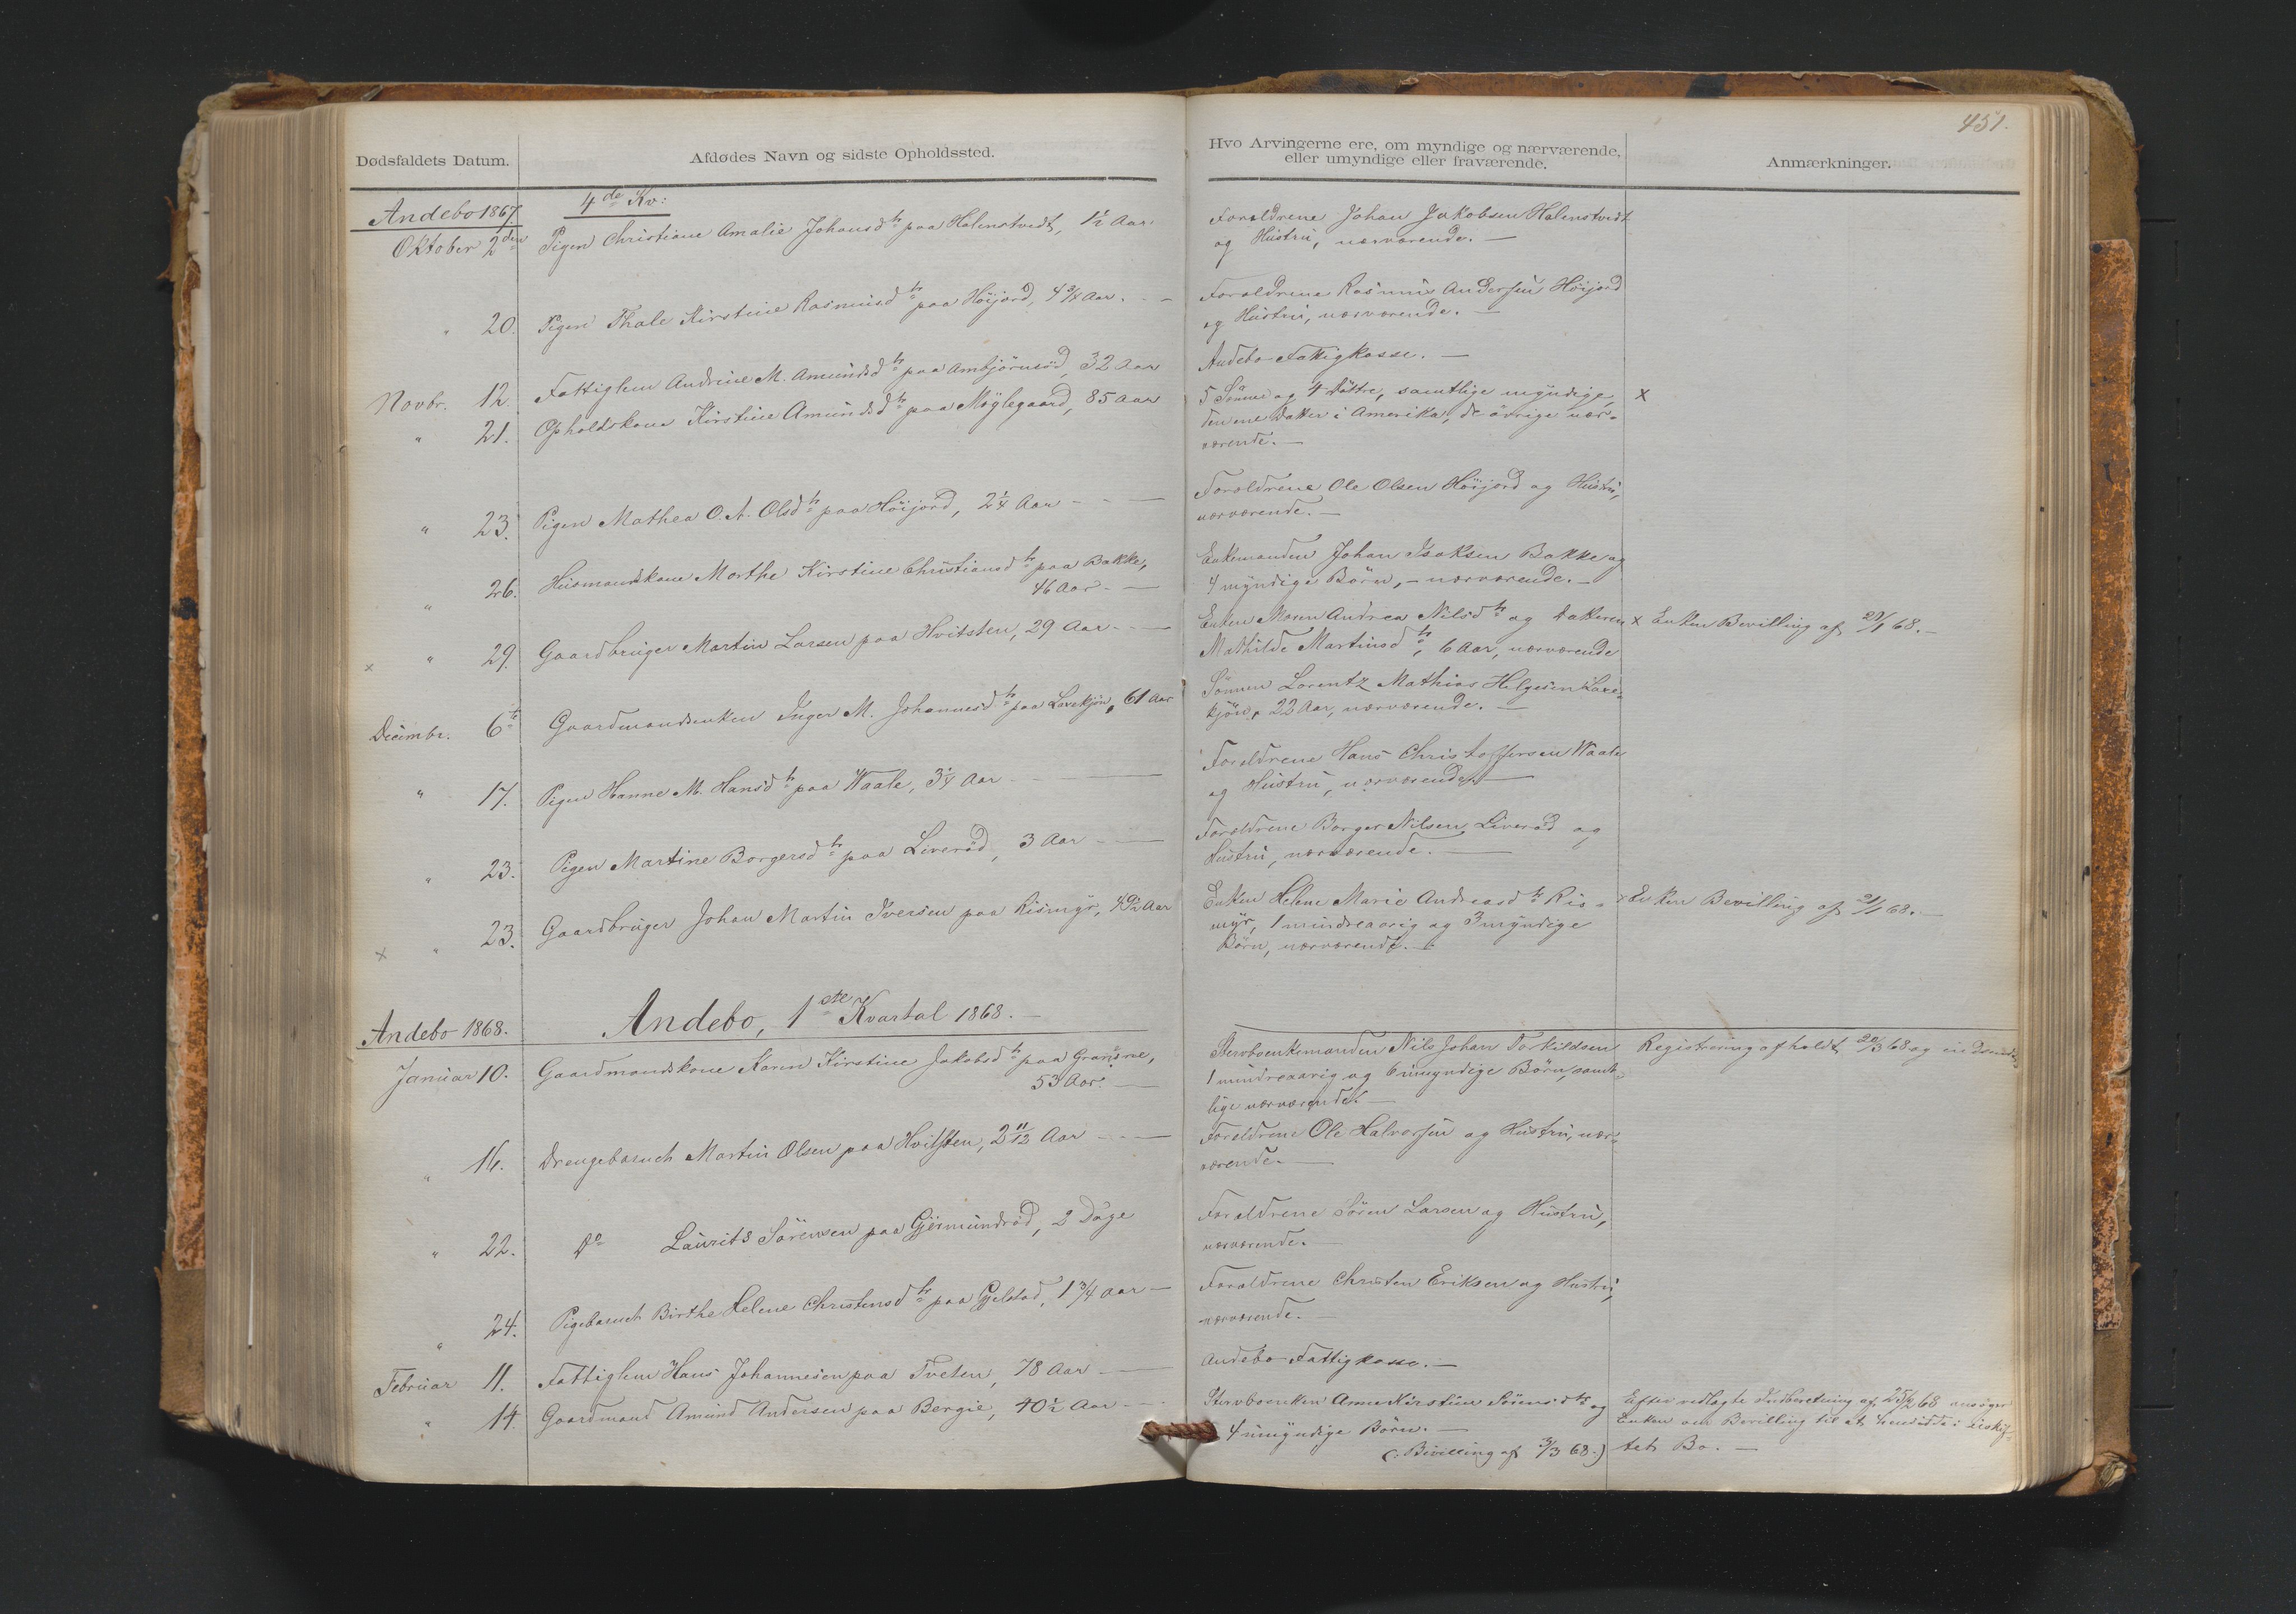 451.
Dødsfaldets Datum.
Afdødes Navn og sidste Opholdssted.
Hvo Arvingerne ere, om myndige og nærværende,
eller umyndige eller fraværende.
Anmærkninger.
Andebo 1867.
4de Kv:
Oktober 2den
Pigen Christiane Amalie Johansdtr paa Halenstvedt, 1½ Aar
Forældrene Johan Jakobsen Halenstvedt
og Hustru, nærværende. —
" 20.
Pigen Thale Kirstine Rasmusdtr paa Höijord, 4¾ Aar. - -
Forældrene Rasmus Andersen Höijord
og Hustru, nærværende. —
Novbr. 12.
Fattiglem Andrine M. Amundsdtr paa Ambjörnröd, 32 Aar
Andebo Fattigkasse. —
" 21.
Opholdskone Kirstine Amundsdtr paa Möylegaard, 85 Aar
5 Sönner og 4 Döttre, samtlige myndige, x
den ene Datter i Amerika, de övrige nær-
værende. —
" 23.
Pigen Mathea O. A. Olsdtr paa Höijord, 2¼ Aar - - —
Forældrene Ole Olsen Höijord og Hustru,
nærværende. —
" 26.
Huusmandskone Marthe Kirstine Christiansdtr paa Bakke,
46 Aar - —
Enkemanden Johan Isaksen Bakke og
4 myndige Börn, - nærværende. —
x " 29.
Gaardbruger Martin Larsen paa Hvitsten, 29 Aar - - —
Enken Maren Andrea Nilsdtr og Datteren
Mathilde Martinsdtr, 6 Aar, nærværende
x Enken Bevilling af 29/1 68. —
Decembr. 6te
Gaardmandsenken Inger M. Johannesdtr paa Lavekjön, 61 Aar
Sönnen Lorentz Mathias Helgesen Lave-
kjön, 22 Aar, nærværende. —
" 17.
Pigen Hanne M. Hansdtr paa Waale, 3¼ Aar - - —
Forældrene Hans Christoffersen Waale
og Hustru, nærværende. —
" 23.
Pigen Martine Borgersdtr paa Liveröd, 3 Aar - - —
Forældrene Borger Nilsen Liveröd og
Hustru, nærværende. —
x " 23.
Gaardbruger Johan Martin Iversen paa Rismyr, 49½ Aar
Enken Helene Marie Andreasdtr Ris-
myr, 1 mindreaarig og 3 myndige
Börn, nærværende. —
x Enken Bevilling af 21/1 68. —
Andebo 1868.
Andebo, 1ste Kvartal 1868. —
Januar 10.
Gaardmandskone Karen Kirstine Jakobsdtr paa Granerne,
53 Aar. —
Stervboenkemanden Nils Johan Torkildsen
1 mindreaarig og 6 umyndige Börn, samt-
lige nærværende. —
Registrering afholdt 20/3 68 og
" 16.
Drengebarnet Martin Olsen paa Hvitsten, 2 11/12 Aar - - —
Forældrene Ole Halvorsen og Hustru, nær-
værende. —
" 22.
Do Laurits Sörensen paa Gjermundröd, 2 Dage
Forældrene Sören Larsen og Hustru,
nærværende. —
" 24.
Pigebarnet Birthe Helene Christensdtr paa Gjelstad, 1¾ Aar —
Forældrene Christen Eriksen og Hustru,
nærværende. —
Februar 11.
Fattiglem Hans Johannesen paa Tveten, 78 Aar —
Andebo Fattigkasse. —
" 14.
Gaardmand Amund Andersen paa Bergie, 40½ Aar - -
Stervboenken Anne Kirstine Sörensdtr og
4 umyndige Börn. —
(: Bevilling af 3/3 68.:)
Efter vedlagte Indberetning af 25/2 68 ansöger
Enken om Bevilling til at hensidde i uskif-
tet Bo. —